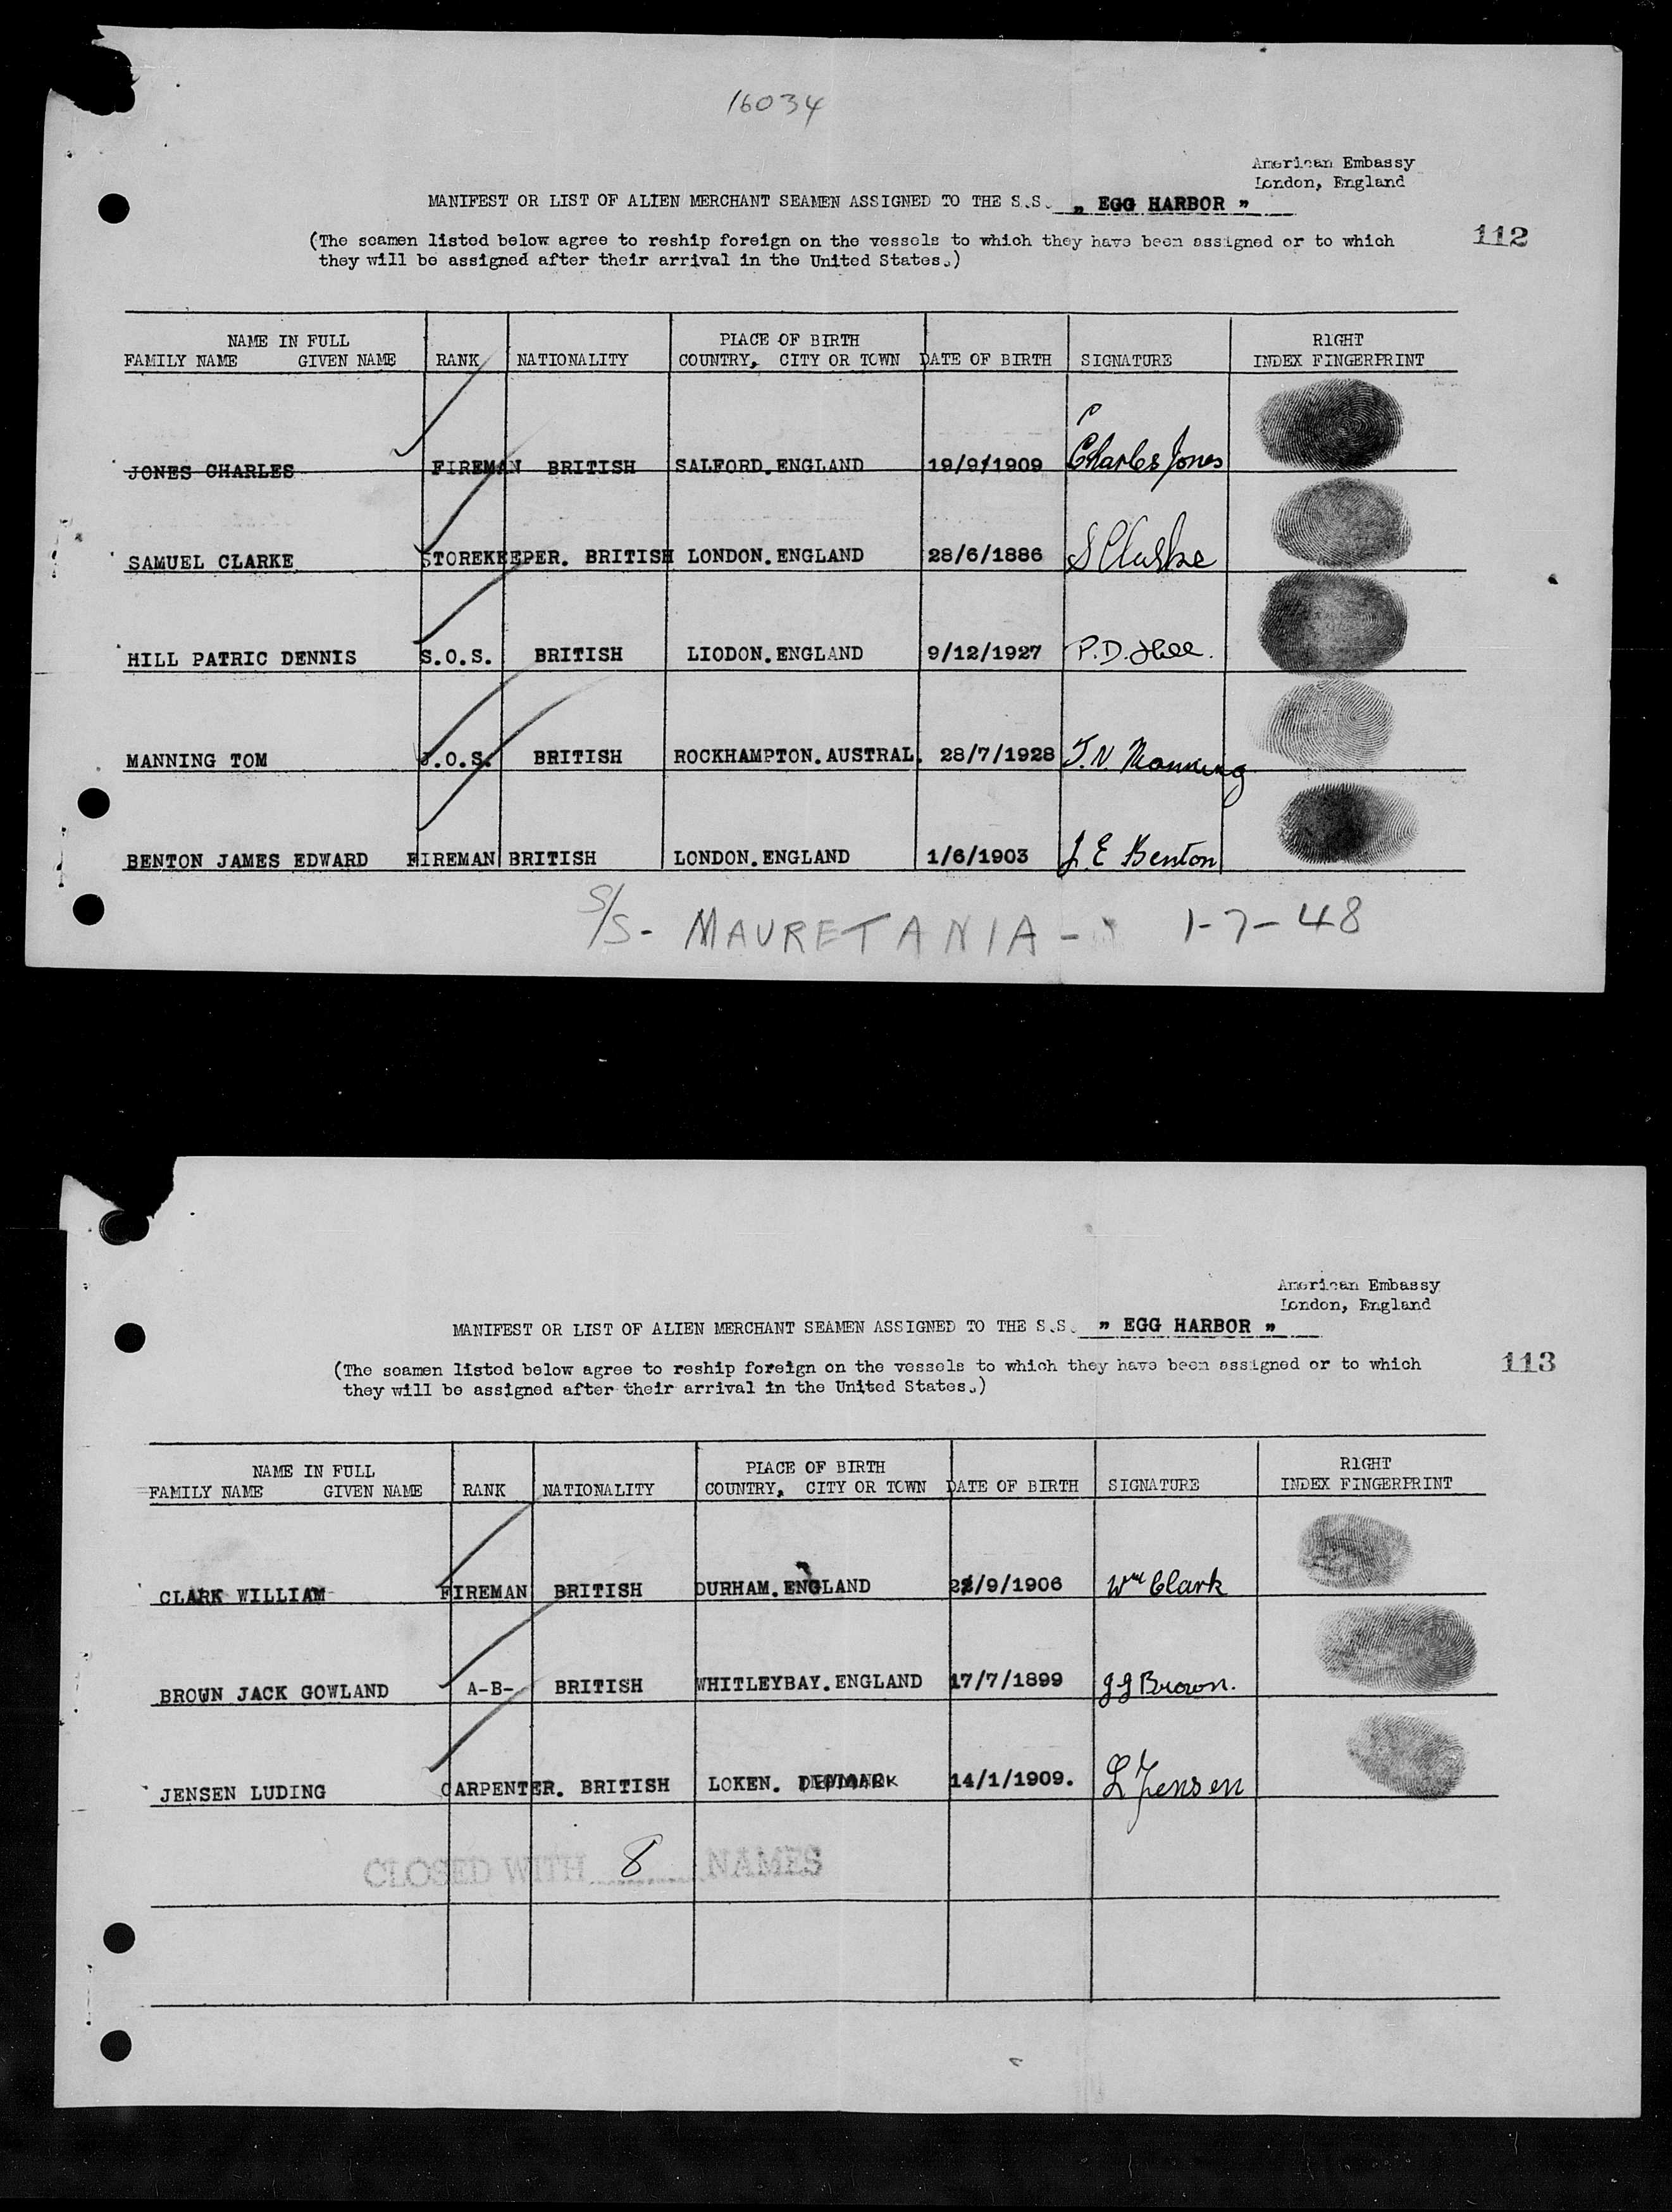 16034
American Embassy
London, England
MANIFEST OR LIST OF ALIEN MERCHANT SEAMEN ASSIGNED TO THE S.S. „ EGG HARBOR "
(The seamen listed below agree to reship foreign on the vessels to which they have been assigned or to which
they will be assigned after their arrival in the United States.)
112
NAME IN FULL PLACE OF BIRTH RIGHT
FAMILY NAME GIVEN NAME RANK NATIONALITY COUNTRY, CITY OR TOWN DATE OF BIRTH SIGNATURE INDEX FINGERPRINT
JONES CHARLES FIREMAN BRITISH SALFORD.ENGLAND 19/9/1909 Charles Jones
SAMUEL CLARKE STOREKEEPER. BRITISH LONDON.ENGLAND 28/6/1886 S Clarke
HILL PATRIC DENNIS S.O.S. BRITISH LIODON.ENGLAND 9/12/1927 P.D. Hill.
MANNING TOM J.O.S. BRITISH ROCKHAMPTON.AUSTRAL. 28/7/1928 T.N. Manning
BENTON JAMES EDWARD FIREMAN BRITISH LONDON.ENGLAND 1/6/1903 J.E Benton
S/S - MAURETANIA - 1-7-48
American Embassy
London, England
MANIFEST OR LIST OF ALIEN MERCHANT SEAMEN ASSIGNED TO THE S.S. " EGG HARBOR "
(The seamen listed below agree to reship foreign on the vessels to which they have been assigned or to which
they will be assigned after their arrival in the United States.)
113
NAME IN FULL PLACE OF BIRTH RIGHT
FAMILY NAME GIVEN NAME RANK NATIONALITY COUNTRY, CITY OR TOWN DATE OF BIRTH SIGNATURE INDEX FINGERPRINT
CLARK WILLIAM FIREMAN BRITISH DURHAM.ENGLAND /9/1906 Wm Clark
BROWN JACK GOWLAND A-B- BRITISH WHITLEYBAY.ENGLAND 17/7/1899 J J Brown.
JENSEN LUDING CARPENTER. BRITISH LOKEN. DENMARK 14/1/1909. L Jensen
CLOSED WITH 8 NAMES